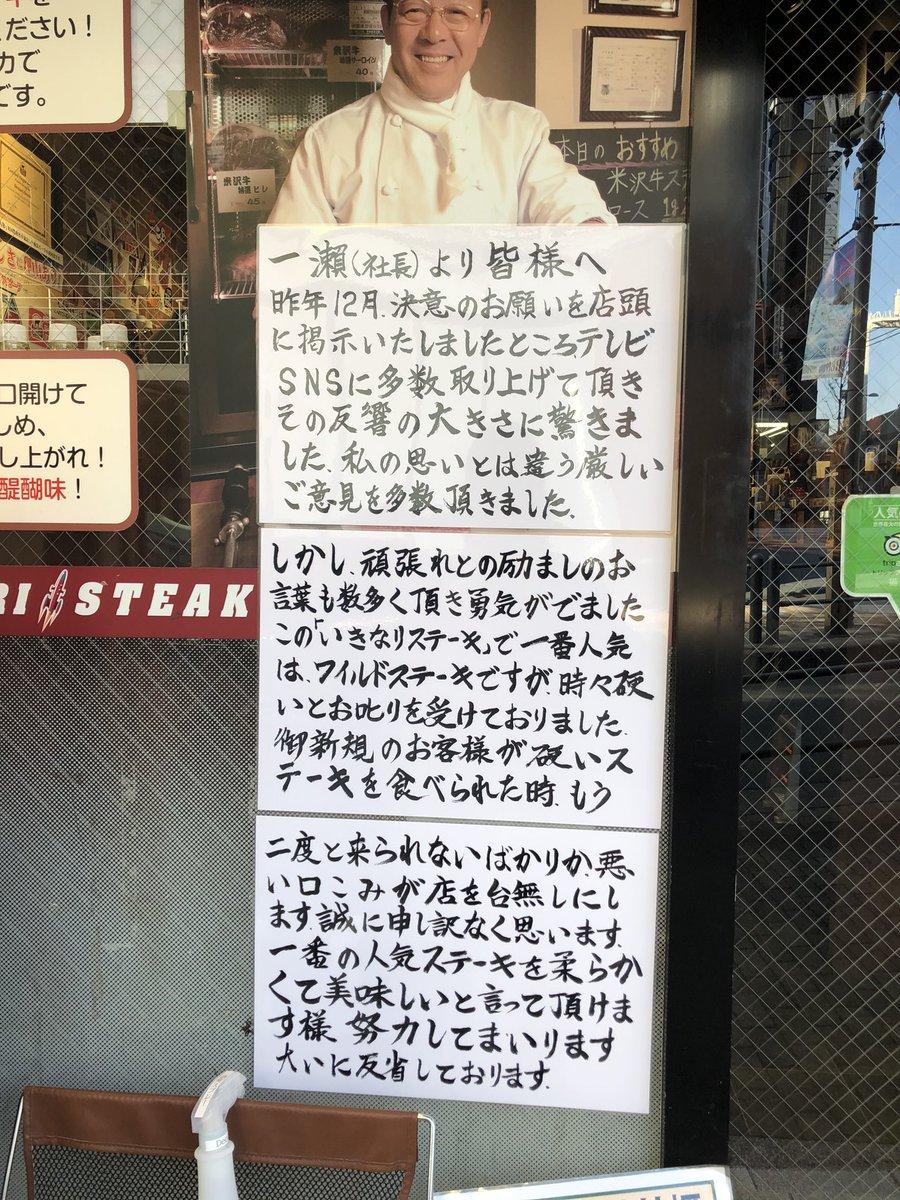 ださい！
カで
です。
米沢牛
特選サーロイン
40
米沢牛
特選 ヒレ
45
本日の おすすめ
米沢牛ス
コース
一瀬(社長)より皆様へ
昨年12月、決意のお願いを店頭
に掲示いたしましたところテレビ
SNSに多数取り上げて頂き
その反響の大きさに驚きま
した、私の思いとは違う厳しい
ご意見を多数頂きました、
しかし、頑張れとの励ましのお
言葉も数多く頂き勇気がでました
この「いきなりステーキ」で一番人気
は、ワイルドステーキですが、時々硬
いとお叱りを受けておりました、
御新規のお客様が硬いス
テーキを食べられた時、もう
二度と来られないばかりか、悪
い口こみが店を台無しにし
ます、誠に申し訳なく思います、
一番の人気ステーキを柔らか
くて美味しいと言って頂けま
す様 努力してまいります
大いに反省しております、
口開けて
しめ、
し上がれ！
醍醐味！
RI STEAK
人気
trip